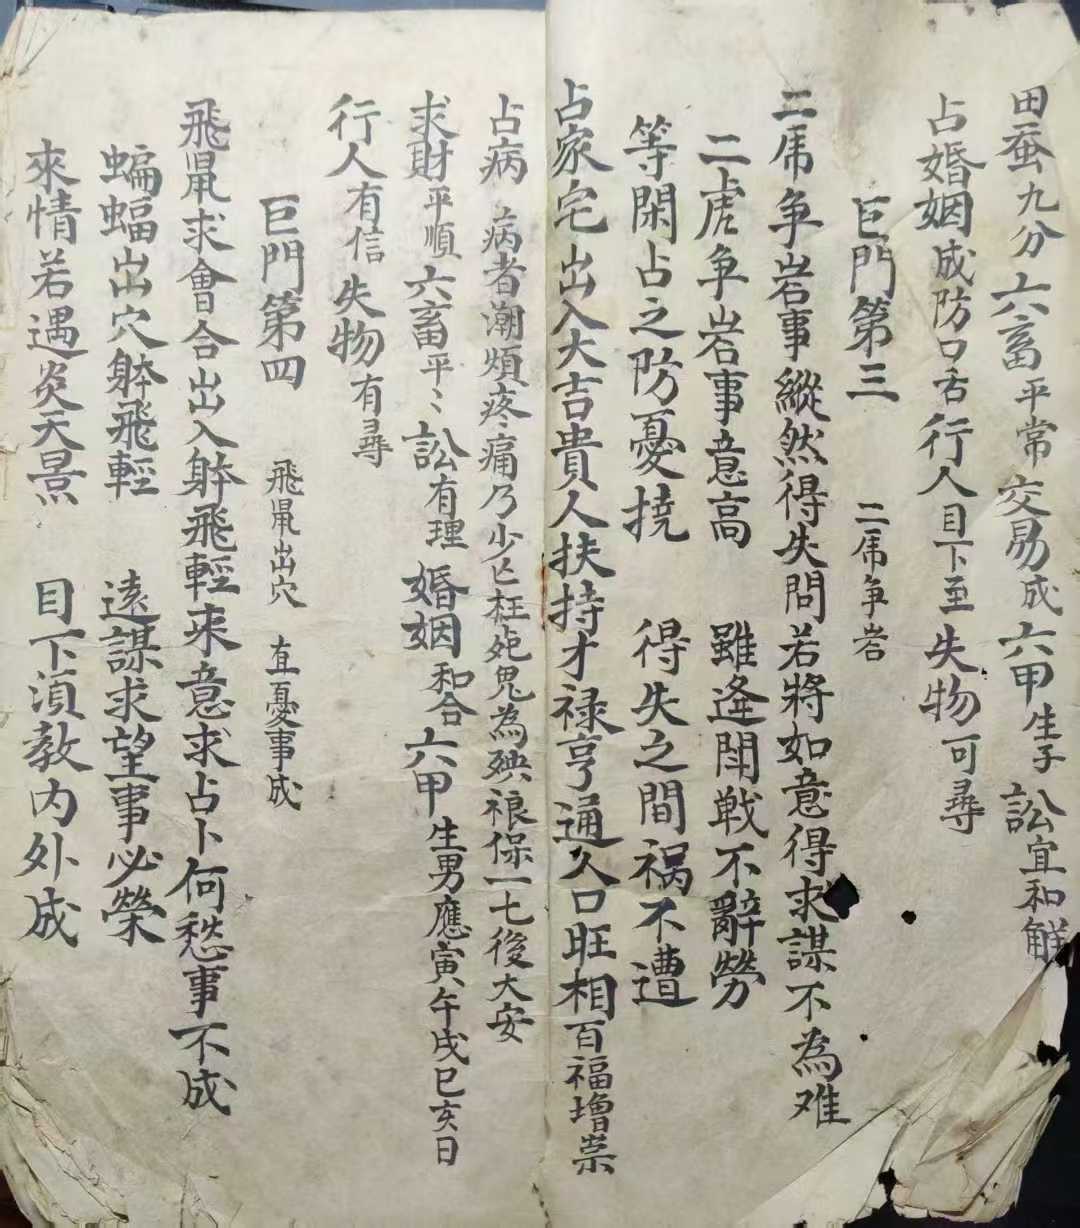 田蚕九分六畜平常交易成六甲生子訟宜和觧
占婚姻成防口舌行人目下至失物可尋
巨門第三 二虎争岩
二虎争岩事縱然得失問若將如意得求謀不為难
二虎争岩事意高 雖逢閗戦不辭勞
等閑占之防憂撓 得失之間禍不遭
占家宅出入大吉貴人扶持才禄亨通人口旺相百福增崇
占病 病者潮煩疼痛乃少亡枉死鬼為殃禳保一七後大安
求財平順六畜平〻訟有理婚姻和合六甲生男應寅午戌巳亥日
行人有信失物有尋
巨門第四 飛鼠出穴 直憂事成
飛鼠求會合出入躰飛輕来意求占卜何愁事不成
蝙蝠出穴躰飛輕 遠謀求望事必榮
來情若遇炎天景 目下湏教内外成